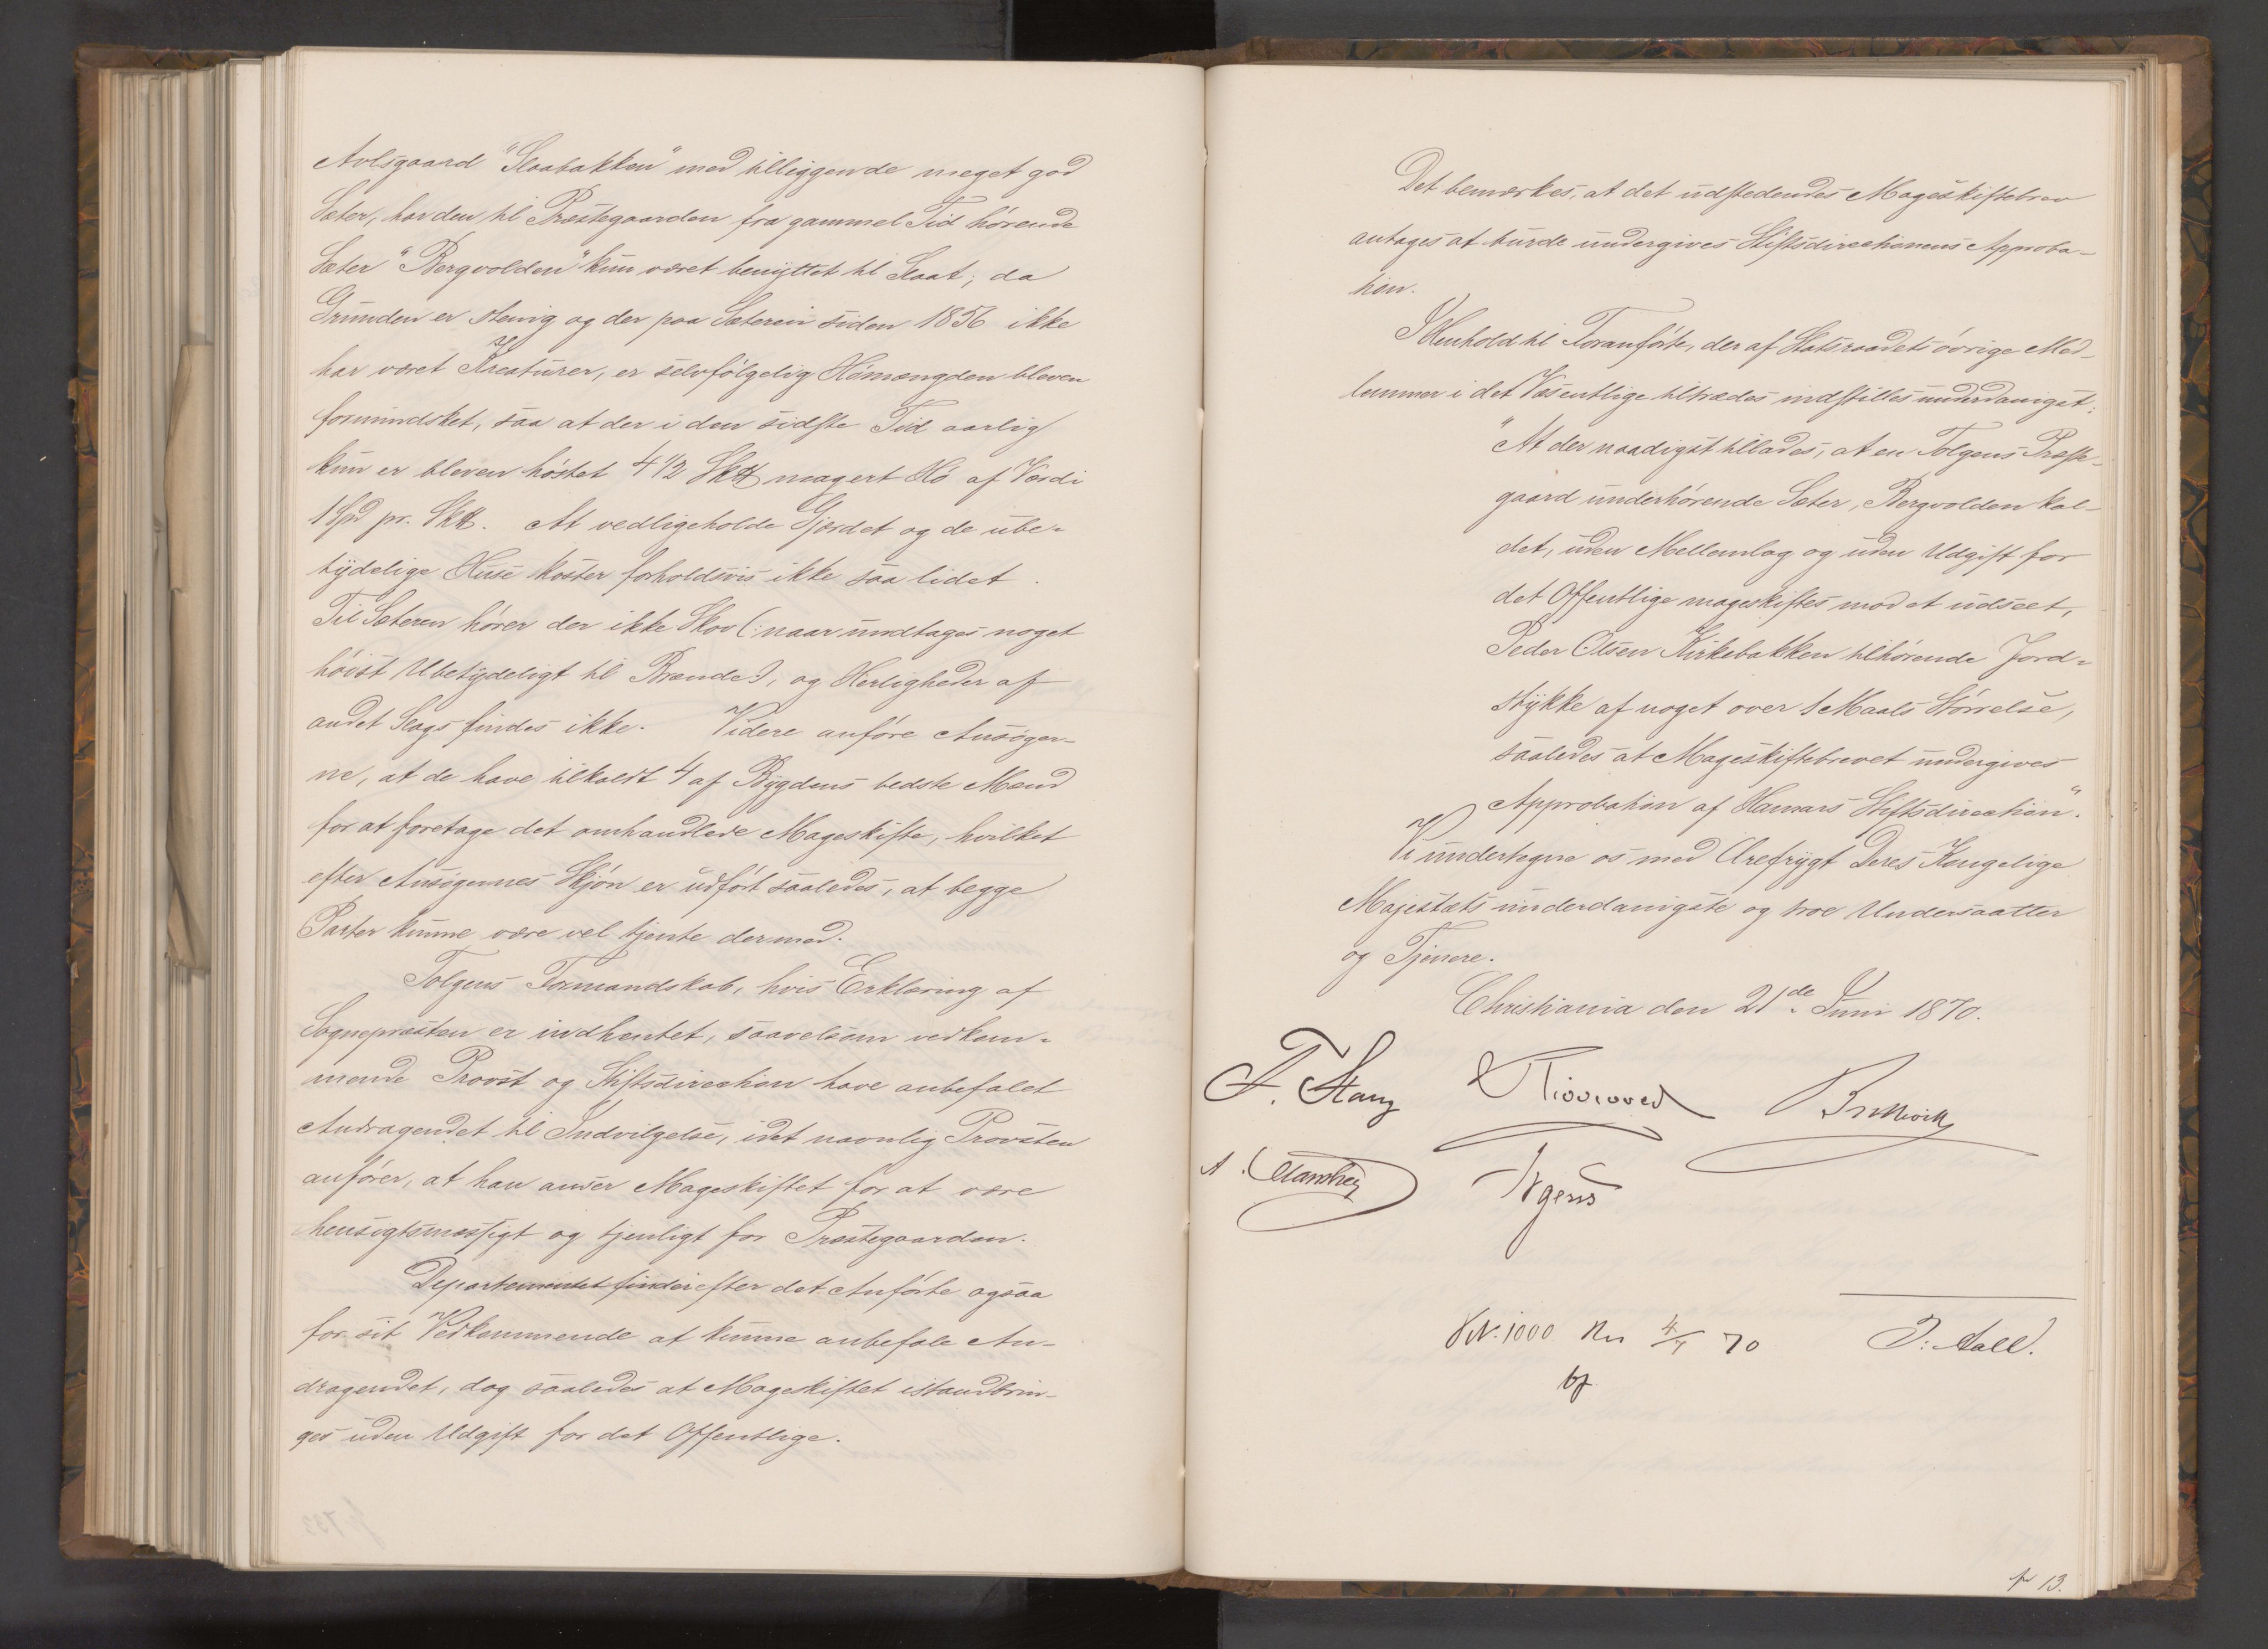 Avlsgaard "Slaabakken" med tilliggende meget god
Sæter, har den til Præstegaarden fra gammel Tid hørende
Sæter "Bergvolden" kun været benyttet til Slaat; da
Grunden er stenig og der paa Sæteren siden 1856 ikke
har været Kreaturer, er selvfølgelig Hömængden bleven
formindsket, saa at der i den sidste Tid aarlig
kun er bleven høstet 4 1/2 Sk℔ magert Hö af Værdi
1 Spd pr. Sk℔. At vedligeholde Gjærdet og de ube-
tydelige Huse koster forholdsvis ikke saa lidet.
Til Sæteren hører der ikke Skov (: naar undtages noget
höist Ubetydeligt til Brænde :), og Herligheder af
andet Slags findes ikke. Videre anföre Ansöger-
ne, at de have tilkaldt 4 af Bygdens bedste Mænd
for at foretage det omhandlede Mageskifte, hvilket
efter Ansögernes Skjön er udfört saaledes, at begge
Parter kunne være vel tjente dermed.
Tolgens Formandskab, hvis Erklæring af
Sognepræsten er indhentet, saavelsom vedkom-
mende Provst og Stiftsdirection have anbefalet
Andragendet til Indvilgelse, idet navnlig Provsten
anfører, at han anser Mageskiftet for at være
hensigtsmæssigt og tjenligt for Præstegaarden.
Departementet finder efter det Anförte ogsaa
for sit Vedkommende at kunne anbefale An-
dragendet, dog saaledes at Mageskiftet istandbrin-
ges uden Udgift for det Offentlige.
Det bemærkes, at det udstedendes Mageskiftebrev
antages at burde undergives Stiftsdirectionens Approba-
tion.
I Henhold til Foranförte, der af Statsraadets övrige Med-
lemmer i det Væsentlige tiltrædes indstilles underdanigst:
"At der naadigst tillades, at en Tolgens Præste-
gaard underhörende Sæter, Bergvolden kal-
det, uden Mellemlag og uden Udgift for
det Offentlige mageskiftes mod et udseet,
Peder Olsen Kirkebakken tilhörende Jord-
stykke af noget over 1 Maals Störrelse,
saaledes at Mageskiftebrevet undergives
Approbation af Hamars Stiftsdirection".
Vi undertegne os med Ærefrygt Deres Kongelige
Majestæts underdanigste og troe Undersaatter
og Tjenere.
Christiania den 21de Juni 1870.
F. Stang
J. Aall.